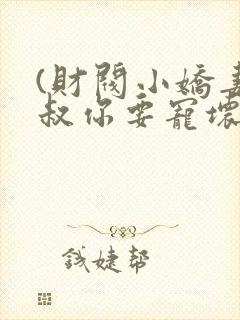 (財閥小嬌妻
叔你要寵壞
錢婕幫